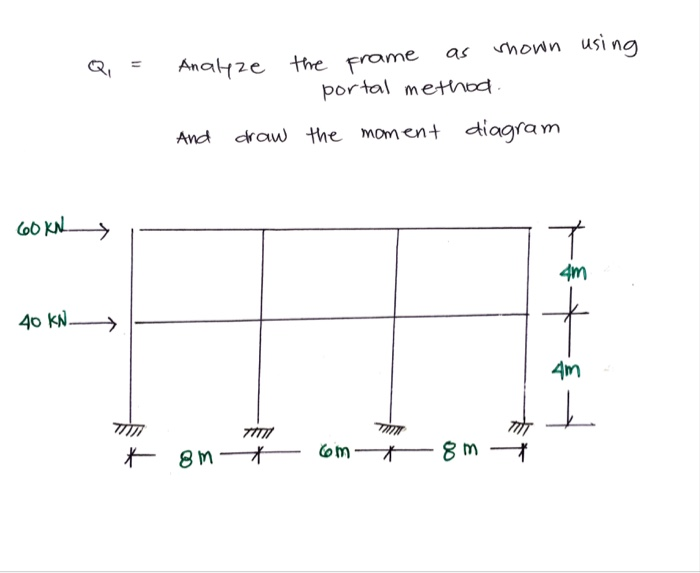 Q1 = Analyze the frame as shown using
portal method.
And draw the moment diagram
60 KN
4m
40 KN
4m
8m 6m 8m